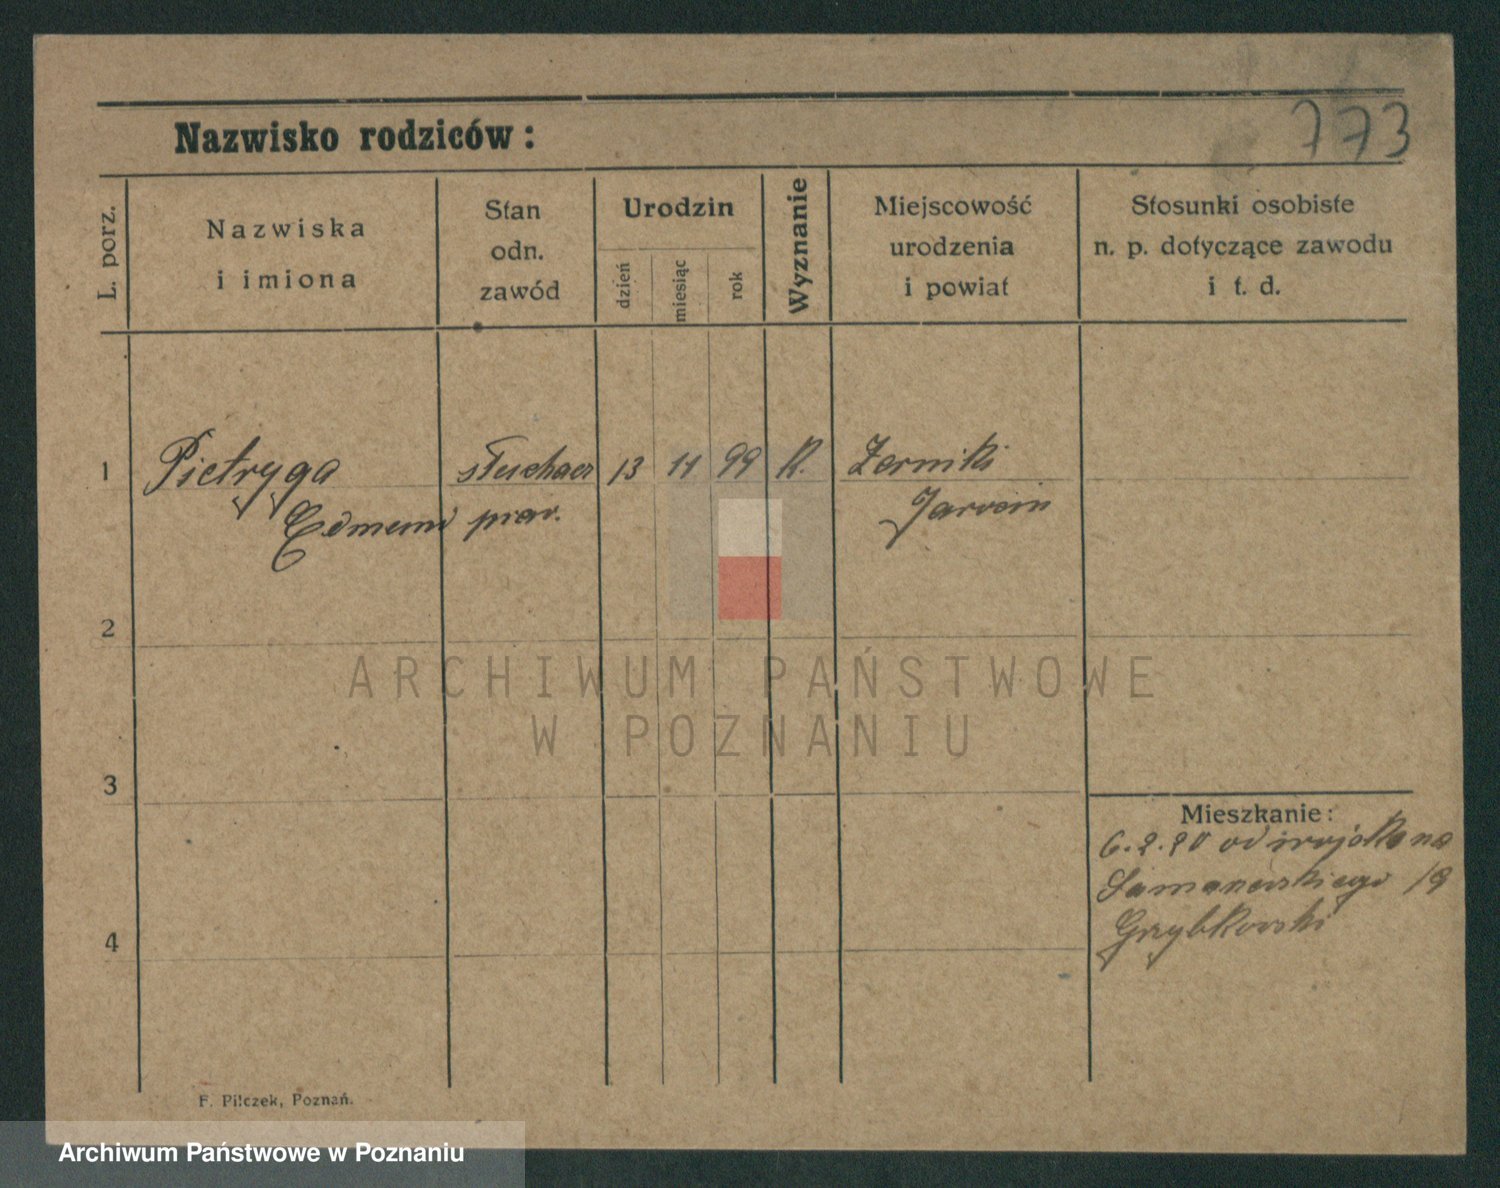 773
Nazwisko rodziców:
L. porz.
Nazwiska
i imiona
Stan
odn.
zawód
Urodzin
dzień
miesiąc
rok
Wyznanie
Miejscowość
urodzenia
i powiat
Stosunki osobiste
n. p. dotyczące zawodu
i t. d.
1
Pietryga
Edmund
słuchacz
praw.
13
11
99
K.
Zerniki
Jarocin
2
ARCHIWUM PAŃSTWOWE
W POZNANIU
3
Mieszkanie:
6.2.20 od wojska na
19
Grzybkowski
4
F. Pilczek, Poznań.
Archiwum Państwowe w Poznaniu